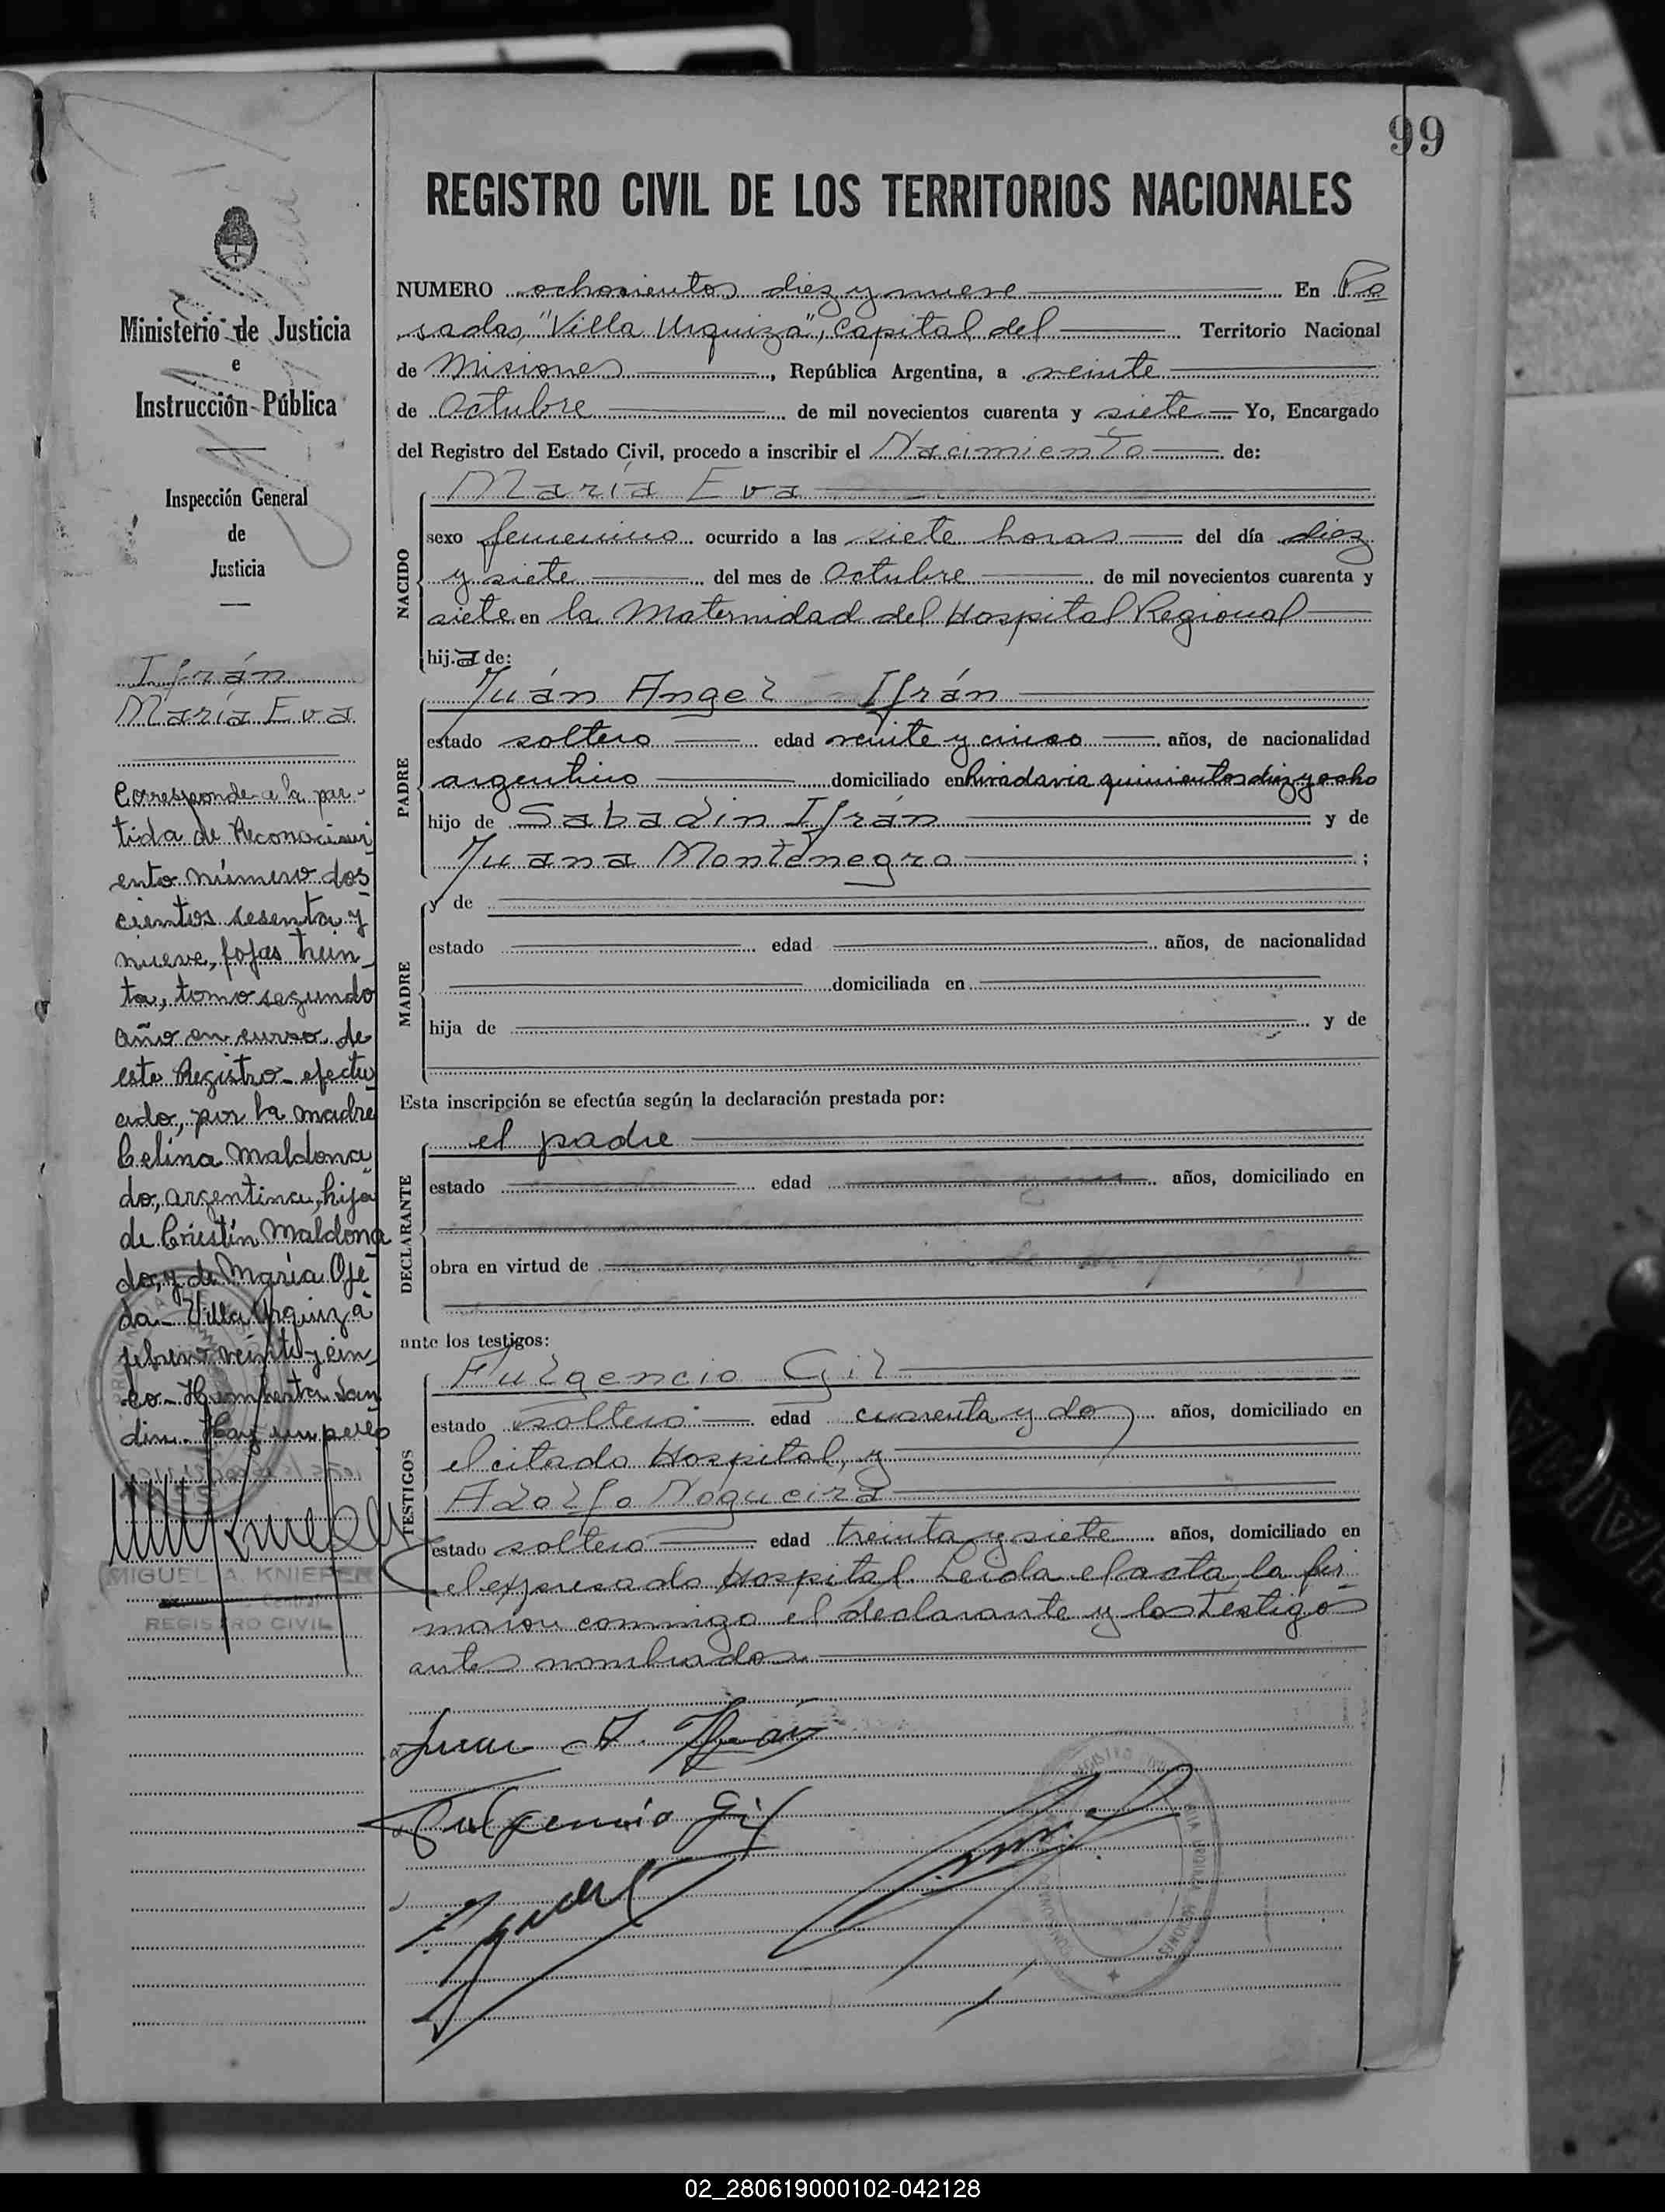 99
REGISTRO CIVIL DE LOS TERRITORIOS NACIONALES
Ministerio de Justicia
e
Instrucción Pública
Inspección General
de
Justicia
Ifrán
María Eva
Corresponde a la par-
tida de Reconocimi
ento número dos
cientos sesenta y
nueve, fojas trein
ta, tomo segundo
año en curso de
este Registro efectu
ado, por la madre
Celina Maldona
do, argentina, hija
de Cristín Maldona
do, y de María Oje
da - Villa Urquiza
febrero veinte y cin
co - Humberto
Hay un
MIGUEL A. KNIEPER
Central
REGISTRO CIVIL
NUMERO ochocientos diez y nueve En Po
sadas, "Villa Urquiza", Capital del Territorio Nacional
de Misiones, República Argentina, a veinte
de Octubre de mil novecientos cuarenta y siete Yo, Encargado
del Registro del Estado Civil, procedo a inscribir el Nacimiento de:
NACIDO
María Eva
sexo femenino ocurrido a las siete horas del día diez
y siete del mes de Octubre de mil novecientos cuarenta y
siete en la Maternidad del Hospital Regional
hij.a de:
PADRE
Juán Angel Ifrán
estado soltero edad veinte y cinco años, de nacionalidad
argentino domiciliado en Rivadavia quinientos diez y ocho
hijo de Sabadin Ifrán y de
Juana Montenegro ;
MADRE
y de
estado edad años, de nacionalidad
domiciliada en
hija de y de
Esta inscripción se efectúa según la declaración prestada por:
DECLARANTE
el padre
estado edad años, domiciliado en
obra en virtud de
ante los testigos:
TESTIGOS
Fulgencio Gil
estado soltero edad cuarenta y dos años, domiciliado en
el citado Hospital, y
Adolfo Nogueira
estado soltero edad treinta y siete años, domiciliado en
el expresado Hospital. Leída el acta, la fir
maron conmigo el declarante y los testigos
antes nombrados.
Juan A. Ifrán
Fulgencio Gil
02_280619000102-042128